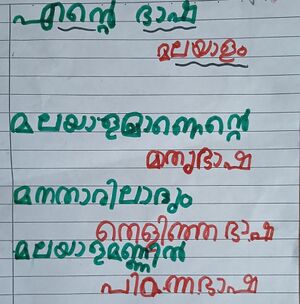 എന്റെ ഭാഷ
മലയാളം
മലയാളമാണെന്റെ
മതൃഭാഷ
മനതാവിലാദ്യം
തെളിഞ്ഞ ഭാഷ
മലയാളമണ്ണിൽ
പിറന്നഭാഷ